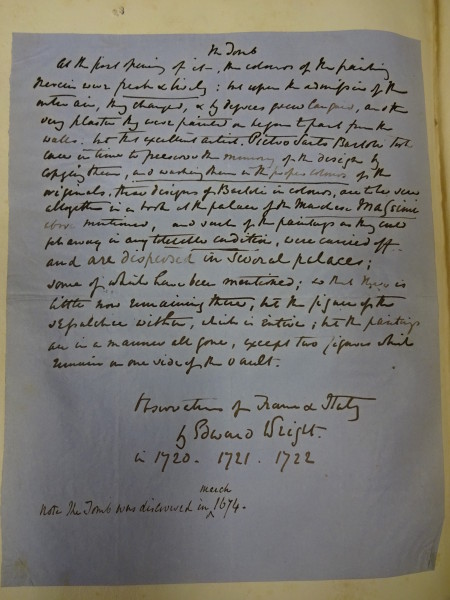 23
the Tomb
At the first opening of it, the colours of the painting
therein were fresh & lively: but upon the admission of the
outer air, they changed, & by degrees grew languid, and the
very plaster they were painted on began to part from the
walls. but the excellent artist Pietro Santo Bartoli took
care in time to preserve the memory of the designs by
copying them, and washing them in the proper colours of the
originals. these designs of Bartoli in colours, are to be seen
altogether in a book at the palace of the Marchese Massimi
above mentioned, and such of the paintings as they could
get away in any tolerable condition, were carried off
and are dispersed in several palaces;
some of which have been mentioned; so that there is
little now remaining there, but the figure of the
sepulchre within, which is entire; but the paintings
are in a manner all gone, except two figures which
remain on one side of the vault.
Observations of France & Italy
by Edward Wright.
in 1720. 1721. 1722
march
note The Tomb was discovered in 1674.